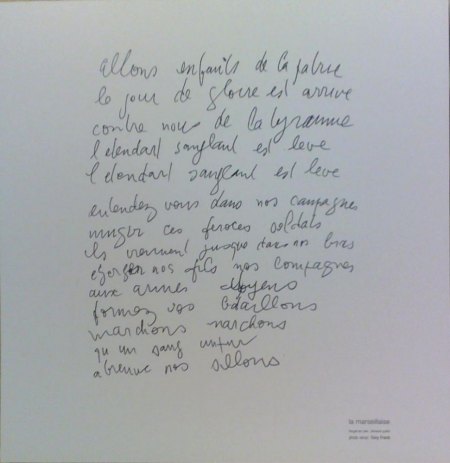 allons enfants de la patrie
le jour de gloire est arrive
contre nous de la tyrannie
l etendart sanglant est leve
l etendart sanglant est leve
entendez vous dans nos campagnes
mugir ces feroces soldats
ils viennent jusque dans nos bras
egorger nos fils nos compagnes
aux armes citoyens
formez vos bataillons
marchons marchons
qu un sang impur
abreuve nos sillons
la marseillaise